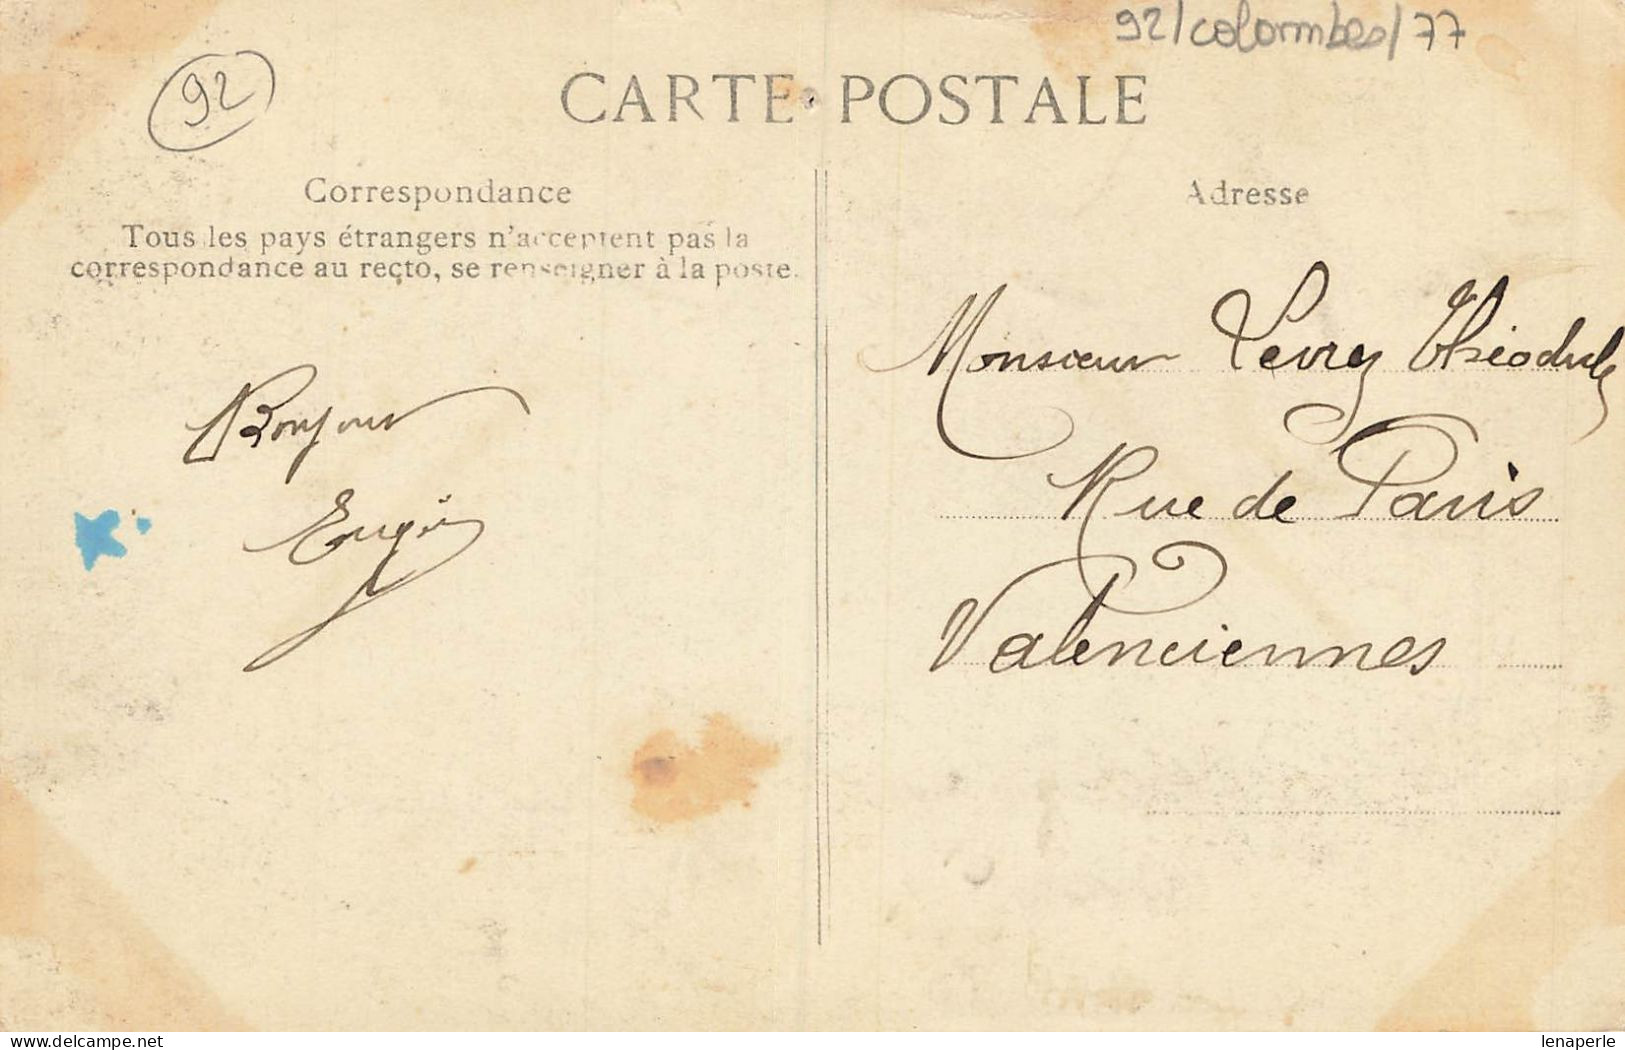 92/colombes/77
92
CARTE POSTALE
Correspondance
Tous les pays étrangers n'acceptent pas la
correspondance au recto, se renseigner à la poste.
Bonjour
Adresse
Monsieur Théodule
Rue de Paris
Valenciennes
lenaperle